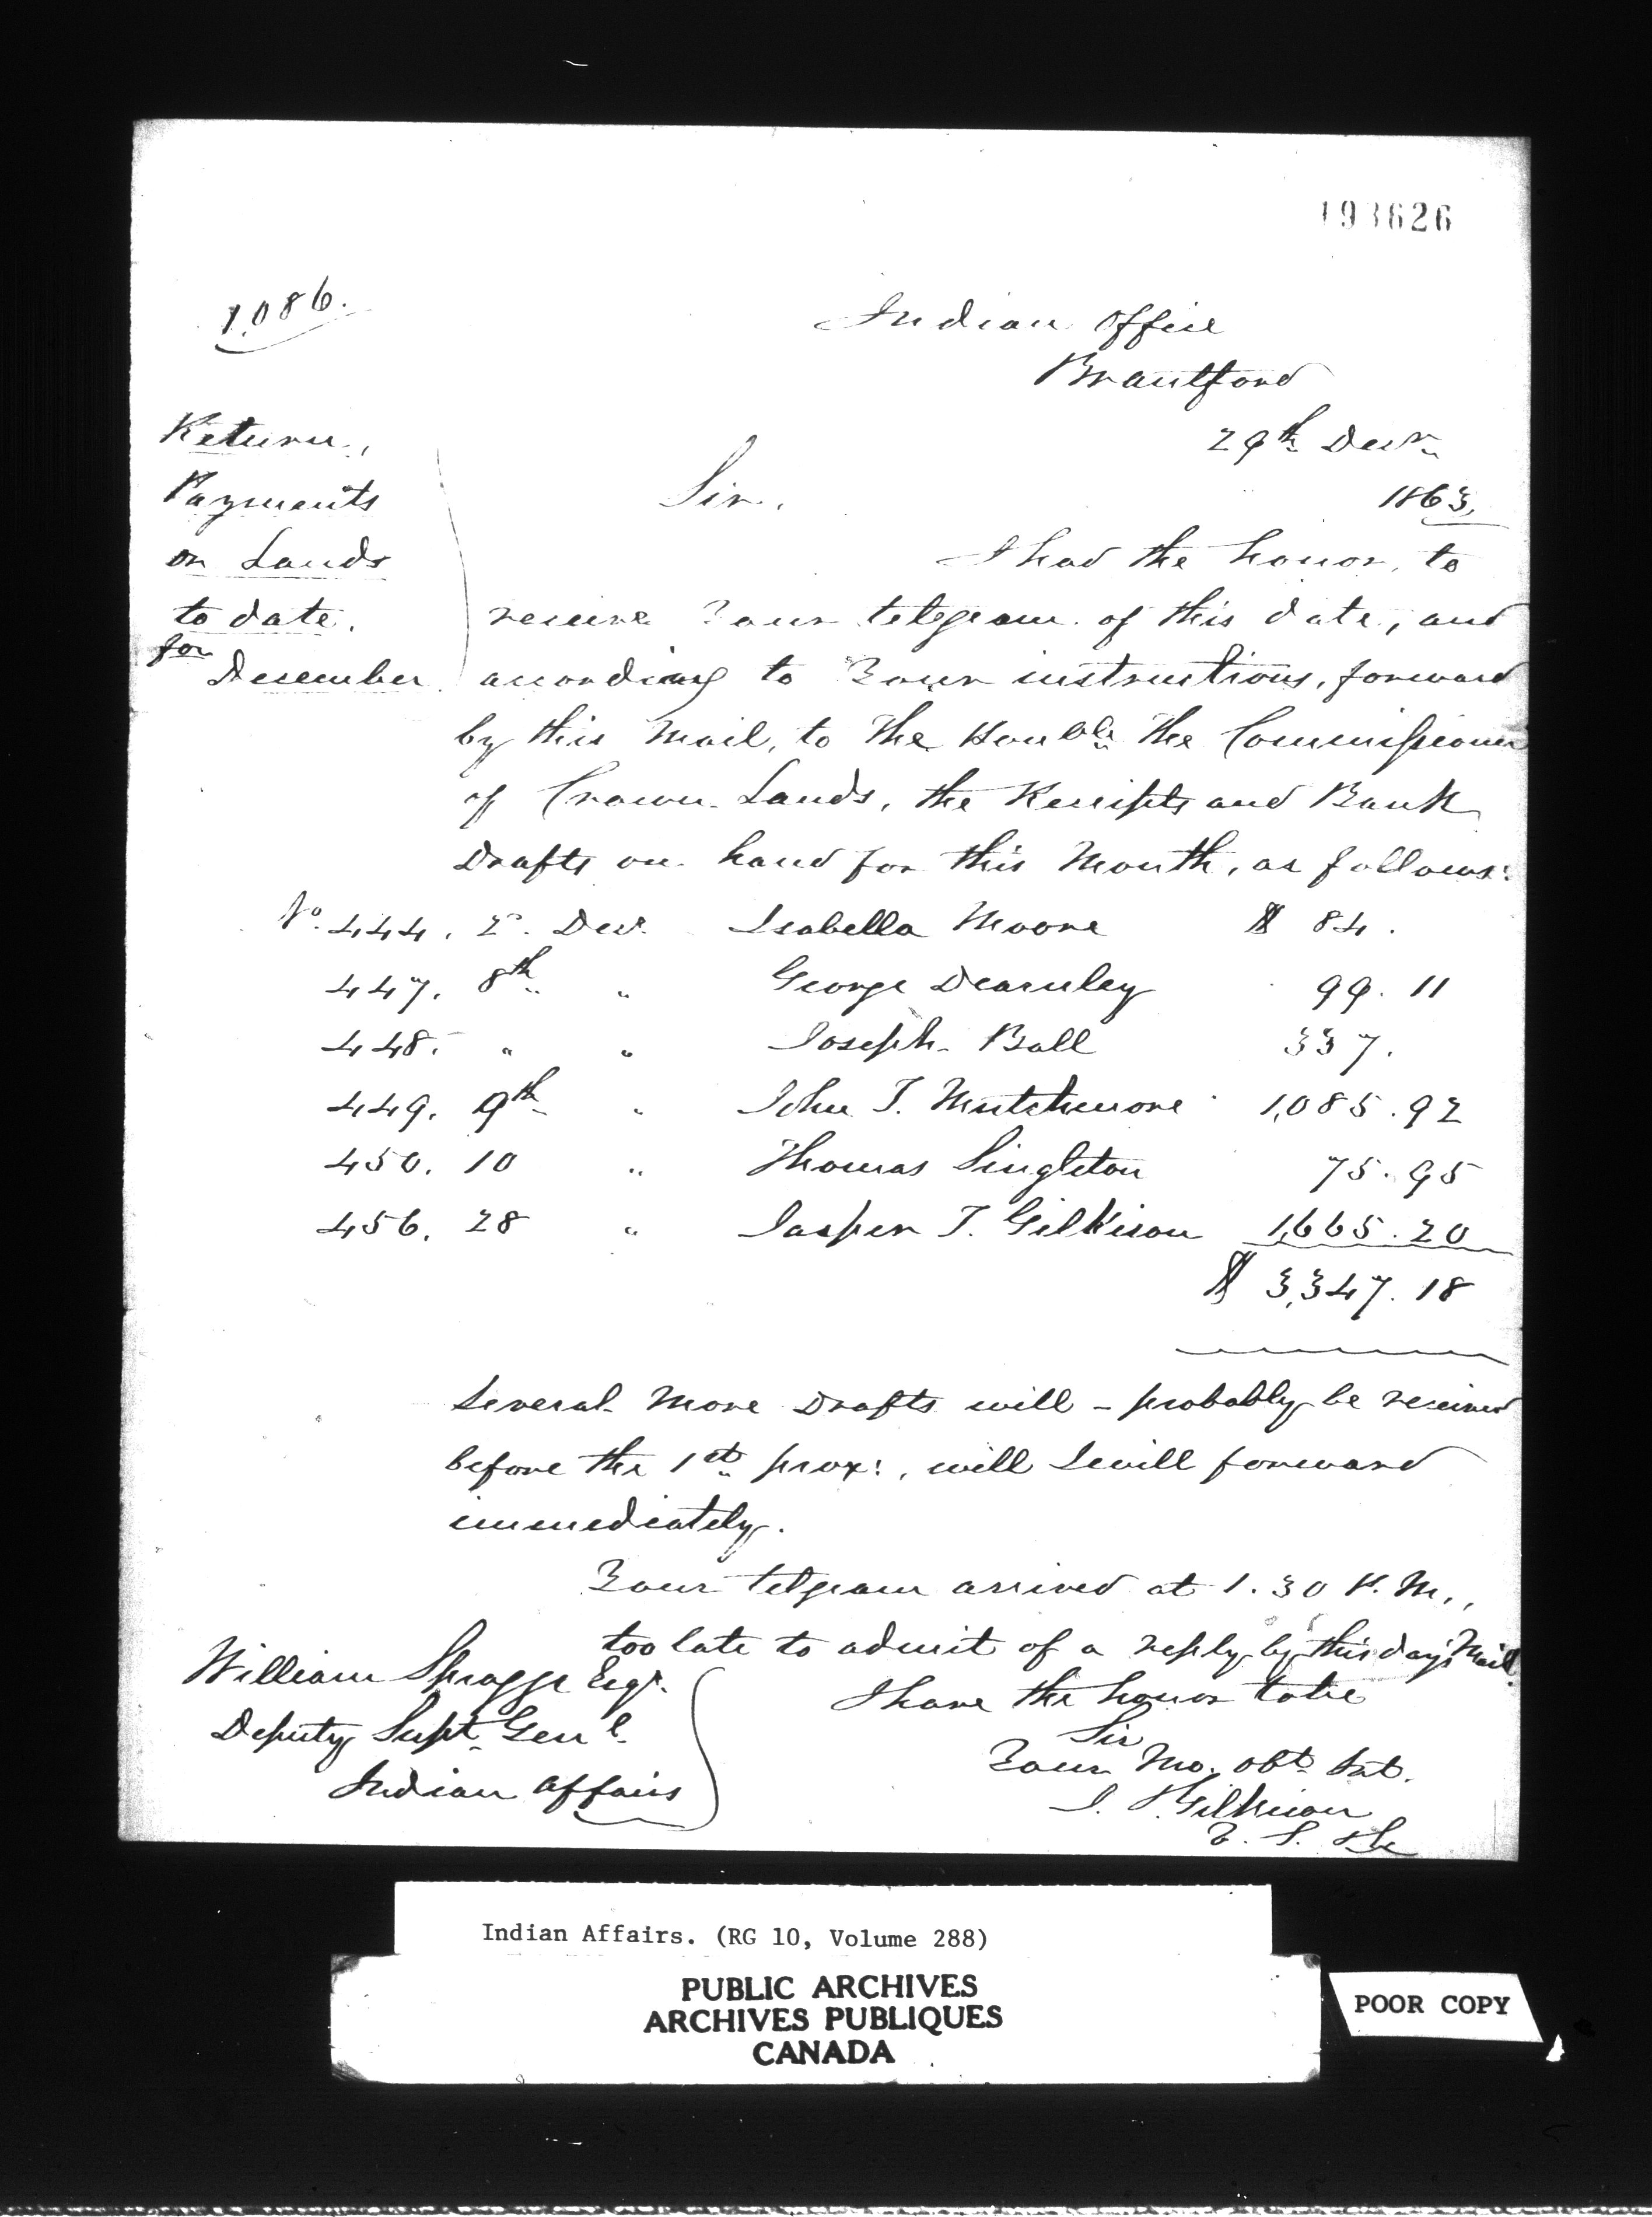 193626
1086.
Indian Office
Brantford
29th Decr.
1863,
Return,
Payments
on Lands
to date.
for
December
Sir,
I had the honor, to
receive Your telegram of this date, and
according to Your instructions, forward
by this Mail, to The Honble. The Commissioner
of Crown Lands, the Receipts and Bank
Drafts on hand for this Month, as follows:
No. 444. 2d. Decr. Isabella Moore $ 84.
447. 8th " George Dearnley 99.11
448. " " Joseph Ball 337.
449. 9th " John T. Mutchmore 1,085.92
450. 10 " Thomas Singleton 75.95
456. 28 " Jasper T. Gilkison 1,665.20
$ 3,347.18
Several More Drafts will - probably be received
before the 1st prox:, will I will forward
immediately.
Your telgram arrived at 1.30 P.M.,
too late to admit of a reply by this day's Mail.
I have the honor to be
Sir
Your Mo. Obt. Svt.
J. T. Gilkison
William Spragge Esqr.
Deputy Supt. Genl.
Indian Affairs
Indian Affairs. (RG 10, Volume 288)
PUBLIC ARCHIVES
ARCHIVES PUBLIQUES
CANADA
POOR COPY